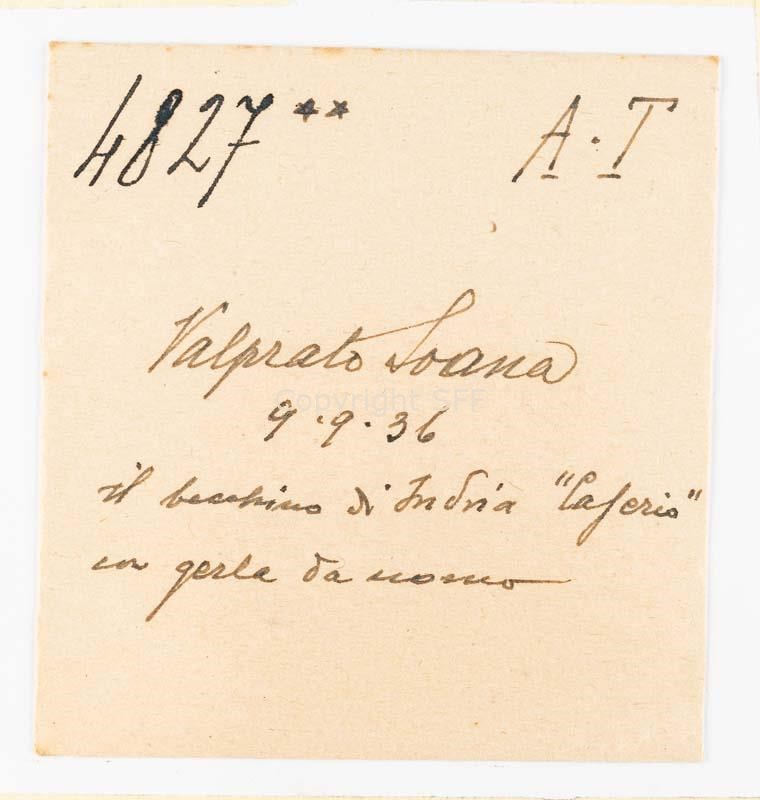 4827 ** A·T
Valprato Soana
9·9·36
il becchino di Indria "Caserio"
con gerla da uomo
Copyright SFF